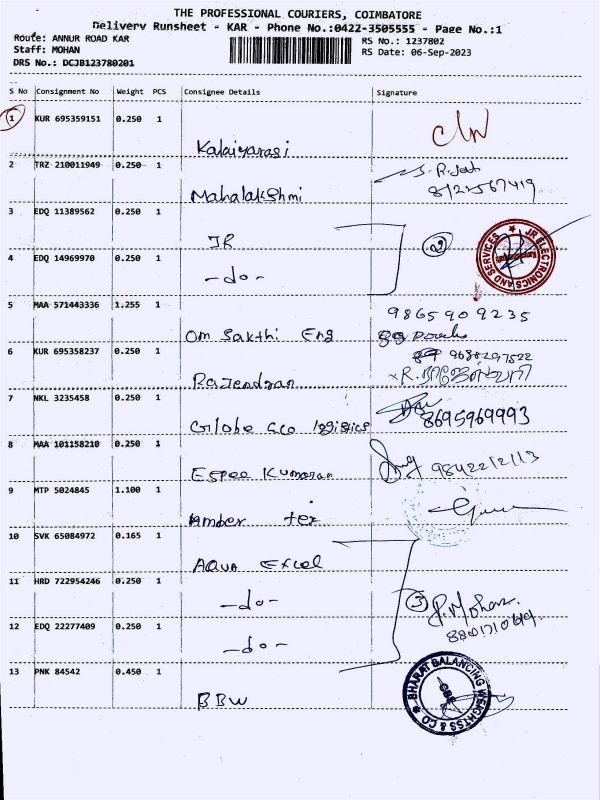 THE PROFESSIONAL COURIERS, COIMBATORE
Delivery Runsheet - KAR - Phone No.:0422-3505555 - Page No.:1
Route: ANNUR ROAD KAR
RS No.: 1237802
Staff: MOHAN
RS Date: 06-Sep-2023
DRS No.: DCJB123780201
S No Consignment No Weight PCS Consignee Details Signature
1 KUR 695359151 0.250 1
Kalaiyarasi
2 TRZ 210011949 0.250 1
Mahalakshmi
3 EDQ 11389562 0.250 1
JR
2
JR ELECTRONICS AND SERVICES
4 EDQ 14969970 0.250 1
-do-
5 MAA 571443336 1.255 1
9865909235
Om Sakthi Eng
6 KUR 695358237 0.250 1
9688297522
Rajendran
7 NKL 3235458 0.250 1
8695969993
Globe Eco logistics
8 MAA 101158210 0.250 1
Espee Kumaran
9842212113
9 MTP 5024845 1.100 1
Amber tex
10 SVK 65084972 0.165 1
Aqua Excel
11 HRD 722954246 0.250 1
-do-
3 P. Mohan
12 EDQ 22277409 0.250 1
-do-
13 PNK 84542 0.450 1
BBW
BHARAT BALANCING WEIGHTSS & CO
CBE